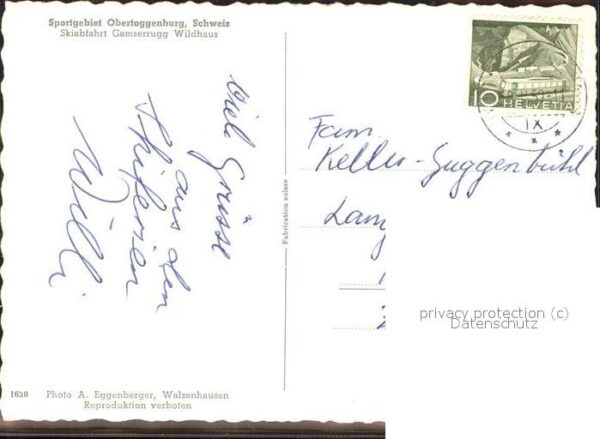 Sportgebiet Obertoggenburg, Schweiz
Skiabfahrt Gamserrugg Wildhaus
Viel Grüsse
aus den
Skiferien
Willi
1630 Photo A. Eggenberger, Walzenhausen
Reproduktion verboten
Fabrication suisse
10 HELVETIA
IX
Fam.
Keller-Guggenbühl
Lang
privacy protection (c)
Datenschutz